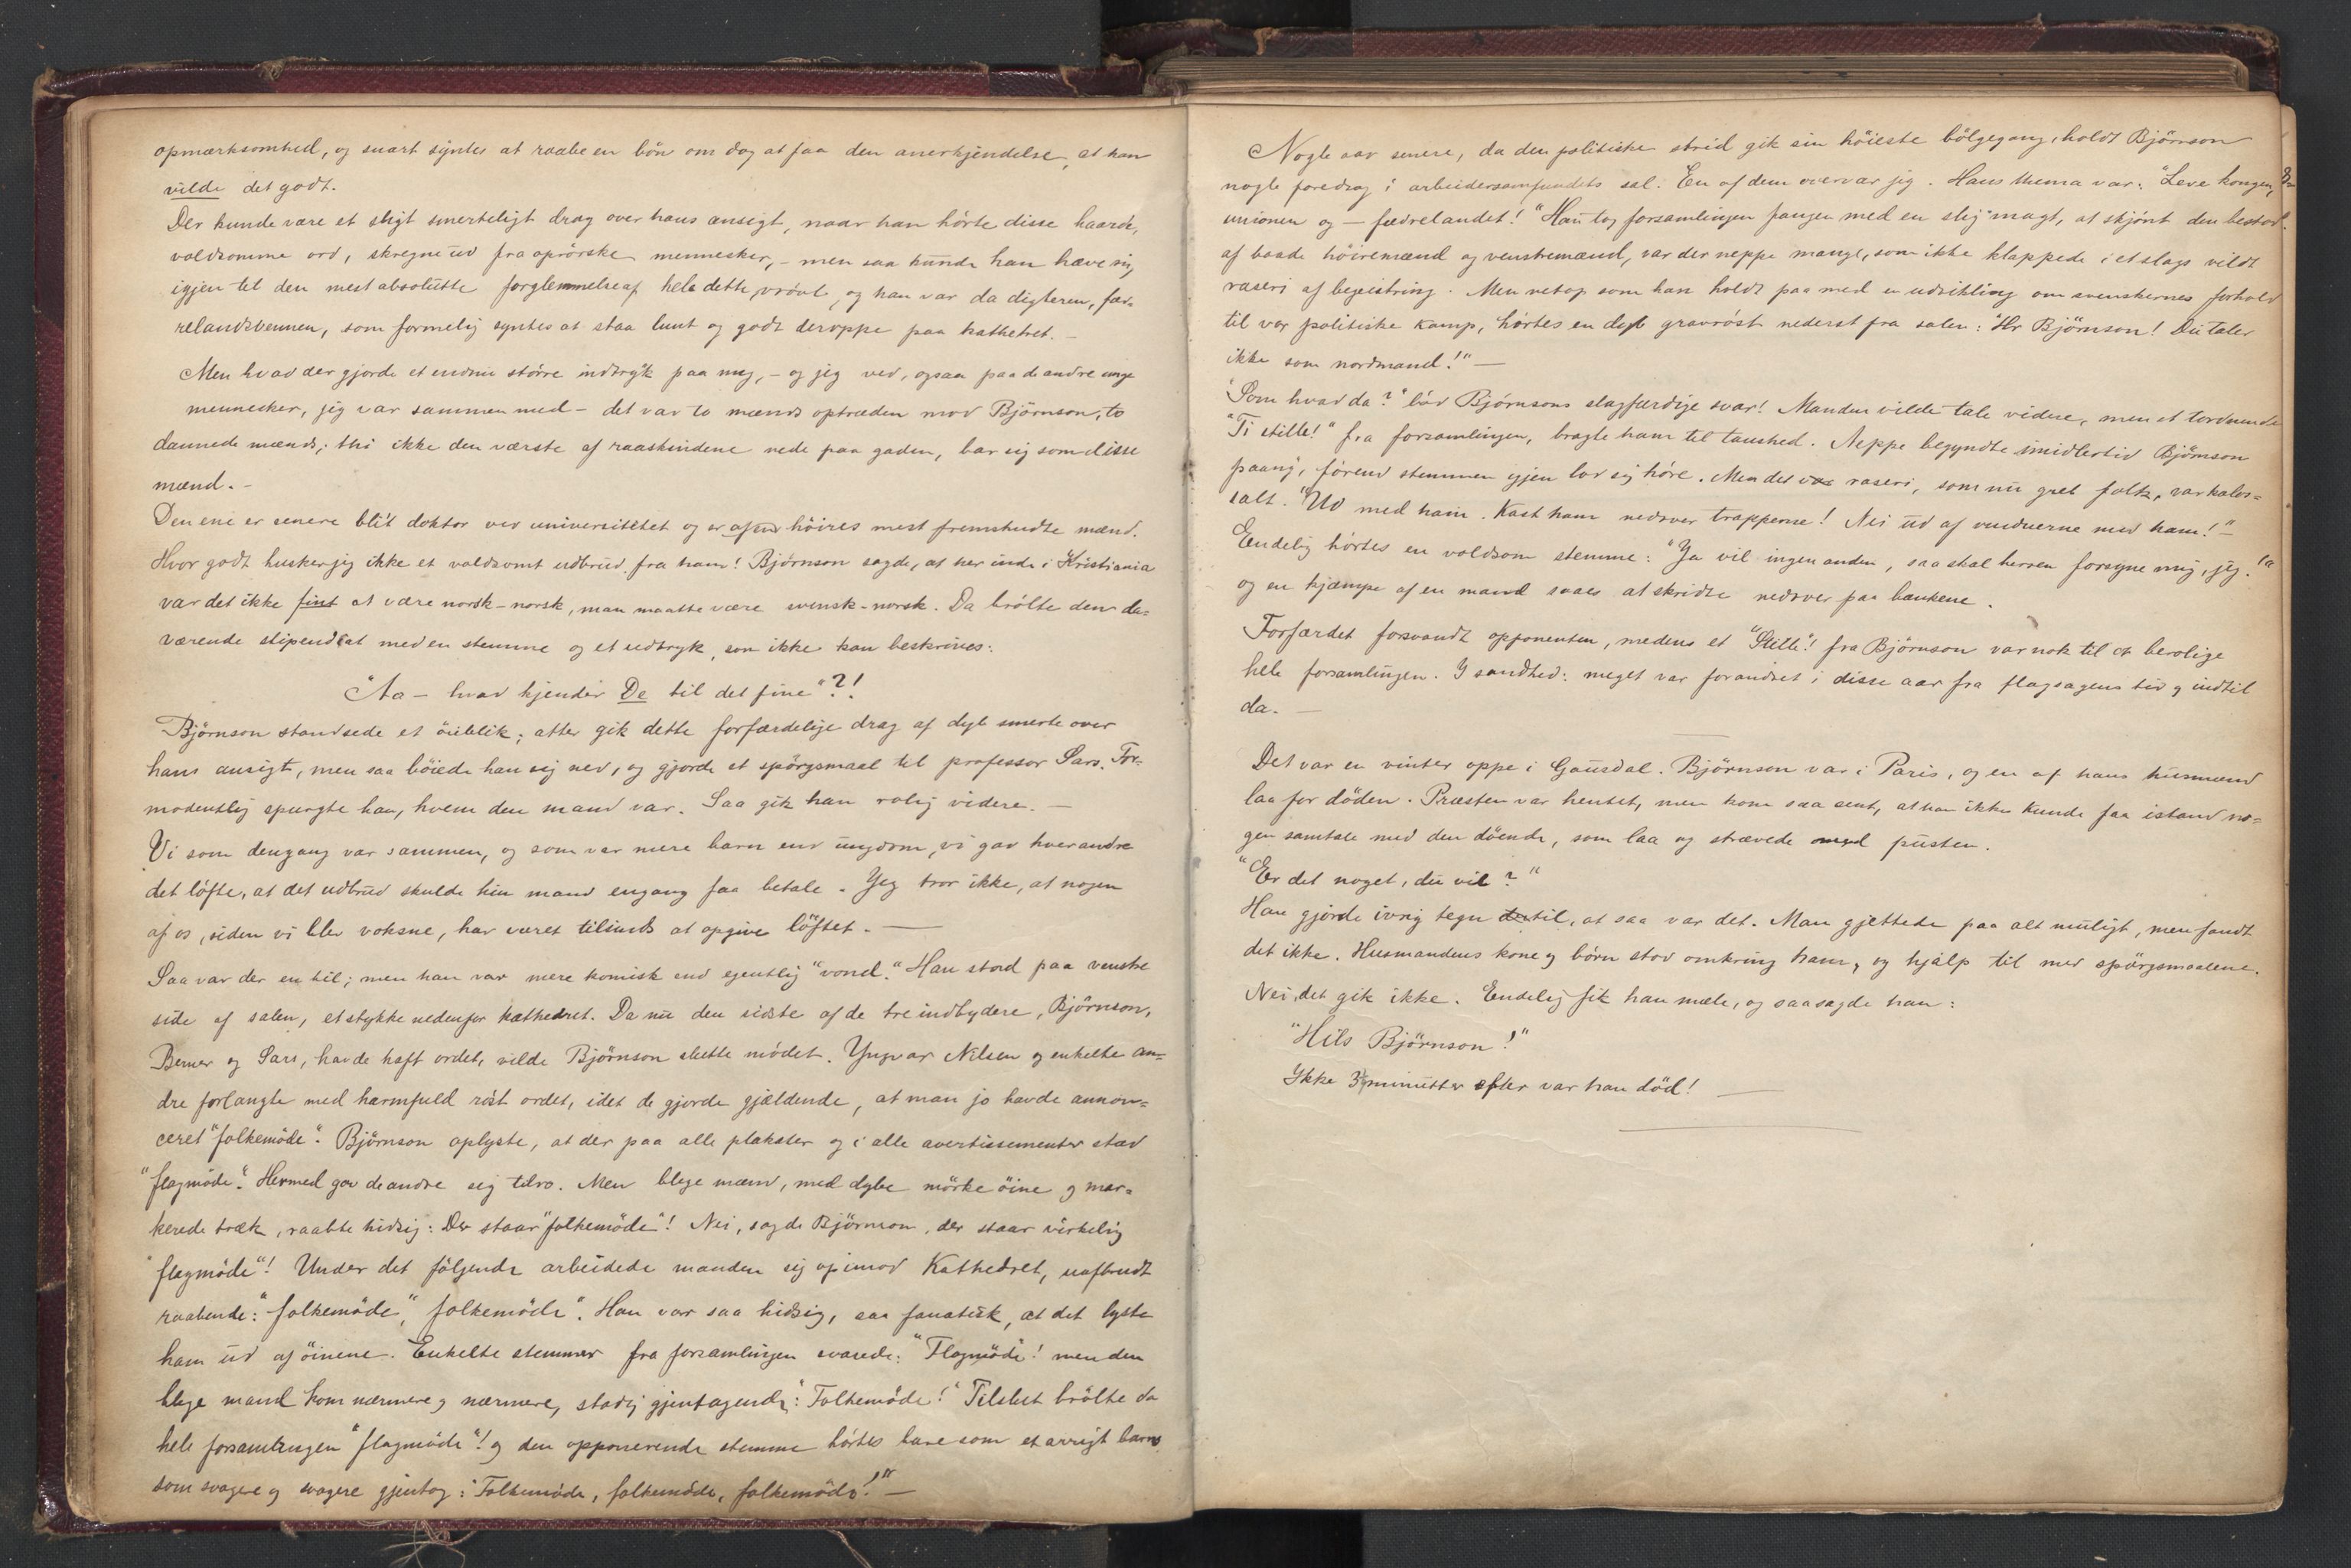 opmærksomhed, og snart syntes at raabe en bön om dog at faa den anerkjendelse, at han
vilde det godt.
Der kunde være et sligt smerteligt drag over hans ansigt, naar han hörte disse haarde,
voldsomme ord, skregne ud fra oprörske mennesker, - men saa kunde han hæve sig
igjen til den mest absolutte forglemmelse af hele dette vrövl, og han var da digteren, fæd-
relandsvennen, som formelig syntes at staa lunt og godt deroppe paa kathetret. -
Men hvad der gjorde et endnu större indtryk paa mig, - og jeg ved, ogsaa paa de andre unge
mennesker, jeg var sammen med - det var to mænds optræden mod Björnson, to
dannede mænds; thi ikke den værste af raaskindene nede paa gaden, bar sig som disse
mænd. -
Den ene er senere blit doktor ved universitetet og er af höires mest fremskudte mænd.
Hvor godt husker jeg ikke et voldsomt udbrud fra ham! Björnson sagde, at her inde i Kristiania
var det ikke fint at være norsk-norsk, man maatte være svensk-norsk. Da brölte den da-
værende stipendiat med en stemme og et udtryk, som ikke kan beskrives:
"Aa - hvad kjender De til det fine"?!
Björnson standsede et öieblik; atter gik dette forfærdelige drag af dyb smerte over
hans ansigt, men saa böiede han sig ned, og gjorde et spörgsmaal til professor Sars. For-
modentlig spurgte han, hvem den mand var. Saa gik han rolig videre. -
Vi som dengang var sammen, og som var mere barn end ungdom, vi gav hverandre
det löfte, at det udbrud skulde hin mand engang faa betale. Jeg tror ikke, at nogen
af os, siden vi blev voksne, har været tilsinds at opgive löftet. -
Saa var der en til; men han var mere komisk end egentlig "vond." Han stod paa venstre
side af salen, et stykke nedenfor kathedret. Da nu den sidste af de tre indbydere, Björnson,
Berner og Sars, havde haft ordet, vilde Björnson slutte mödet. Yngvar Nilsen og enkelte an-
dre forlangte med harmfuld röst ordet, idet de gjorde gjældende, at man jo havde annon-
ceret "folkemöde". Björnson oplyste, at der paa alle plakater og i alle avertissementer stod
"flagmöde". Hermed gav de andre sig tilro. Men blege mænd, med dybe mörke öine og mar-
kerede træk, raabte hidsig: Der staar "folkemöde"! Nei, sagde Björnson, der staar virkelig
"flagmöde"! Under det fölgende arbeidede manden sig op imod Kathedret, uafbrudt
raabende: "folkemöde", "folkemöde". Han var saa hidsig, saa fanatisk, at det lyste
ham ud af öinene. Enkelte stemmer fra forsamlingen svarede: "Flagmöde! men den
blege mand kom nærmere og nærmere, stadig gjentagende: "Folkemöde!" Tilslut brölte da
hele forsamlingen "flagmöde"! og den opponerende stemme hörtes bare som et arrigt barns
som svagere og svagere gjentog: "Folkemöde, folkemöde, folkemöde!" -
Nogle aar senere, da den politiske strid gik sin höieste bölgegang, holdt Björnson
nogle foredrag i arbeidersamfundets sal. En af dem overvar jeg. Hans thema var: "Leve kongen,
unionen og - fædrelandet!" Han tog forsamlingen fangen med en slig magt, at skjönt den bestod
af baade höiremænd og venstremænd, var der neppe mange, som ikke klappede i et slags vildt
raseri af begeistring. Men netop som han holdt paa med en udvikling om svenskernes forhold
til vor politiske kamp, hörtes en dyb gravröst nederst fra salen: "Hr Björnson! Du taler
ikke som nordmand!" -
"Som hvad da?" löd Björnsons slagfærdige svar! Manden vilde tale videre, men et tordnende
"Ti stille!" fra forsamlingen, bragte ham til taushed. Neppe begyndte imidlertid Björnson
paany, förend stemmen igjen lod sig höre. Men det raseri, som nu greb folk, var kolos-
salt. "Ud med ham. Kast ham nedover trapperne! Nei ud af vinduerne med ham!" -
Endelig hörtes en voldsom stemme: "Ja vil ingen anden, saa skal herren forsyne mig, jeg!"
og en kjæmpe af en mand saaes at skridte nedover paa bænkene.
Forfærdet forsvandt opponenten, medens et "Stille"! fra Björnson var nok til at berolige
hele forsamlingen. I sandhed: meget var forandret i disse aar fra flagsagens tid og indtil
da. -
Det var en vinter oppe i Gausdal. Björnson var i Paris, og en af hans husmænd
laa for döden. Præsten var hentet, men kom saa sent, at han ikke kunde faa istand no-
gen samtale med den döende, som laa og strævede med pusten.
"Er det noget, du vil?"
Han gjorde ivrig tegn til, at saa var det. Man gjettede paa alt muligt, men fandt
det ikke. Husmandens kone og börn stod omkring ham, og hjalp til med spörgsmaalene.
Nei, det gik ikke. Endelig fik han mæle, og saa sagde han:
"Hils Björnson!"
Ikke 3 minutter efter var han död! -